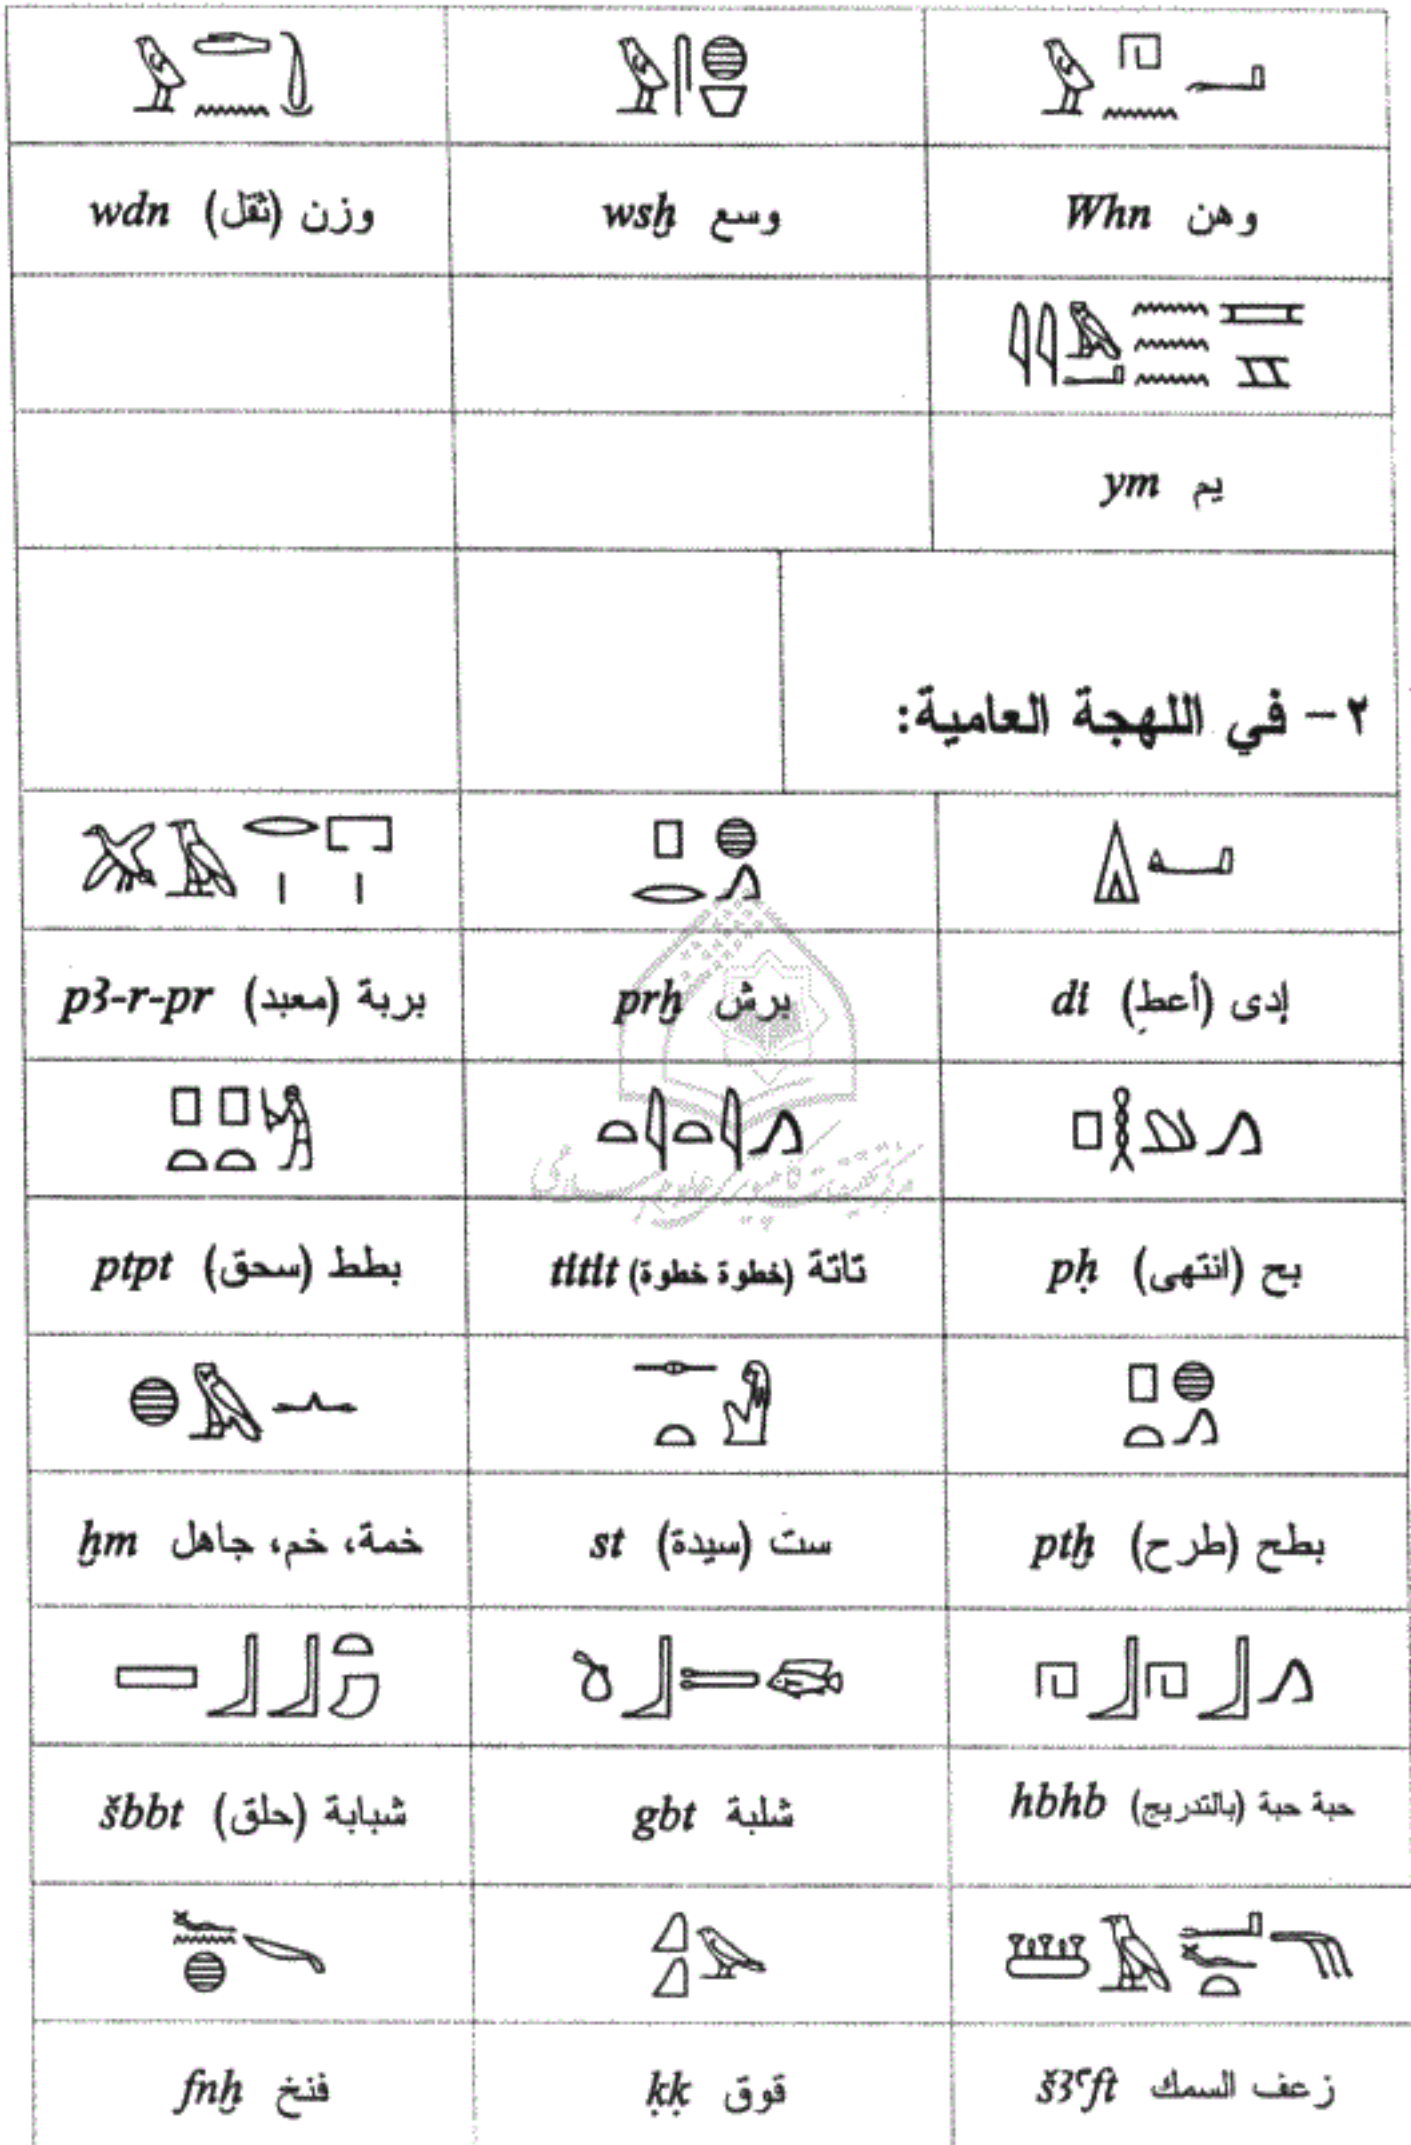 وهن Whn
وسع wsḫ
وزن (ثقل) wdn
يم ym
٢ – في اللهجة العامية:
إدى (أعطِ) di
برش prḫ
بربة (معبد) p3-r-pr
بح (انتهى) pḥ
تاتة (خطوة خطوة) titit
بطط (سحق) ptpt
بطح (طرح) ptḫ
ست (سيدة) st
خمة، خم، جاهل ḫm
حبة حبة (بالتدريج) hbhb
شلبة gbt
شبابة (حلق) šbbt
زعف السمك š3ꜥft
قوق ḳḳ
فنخ fnḫ